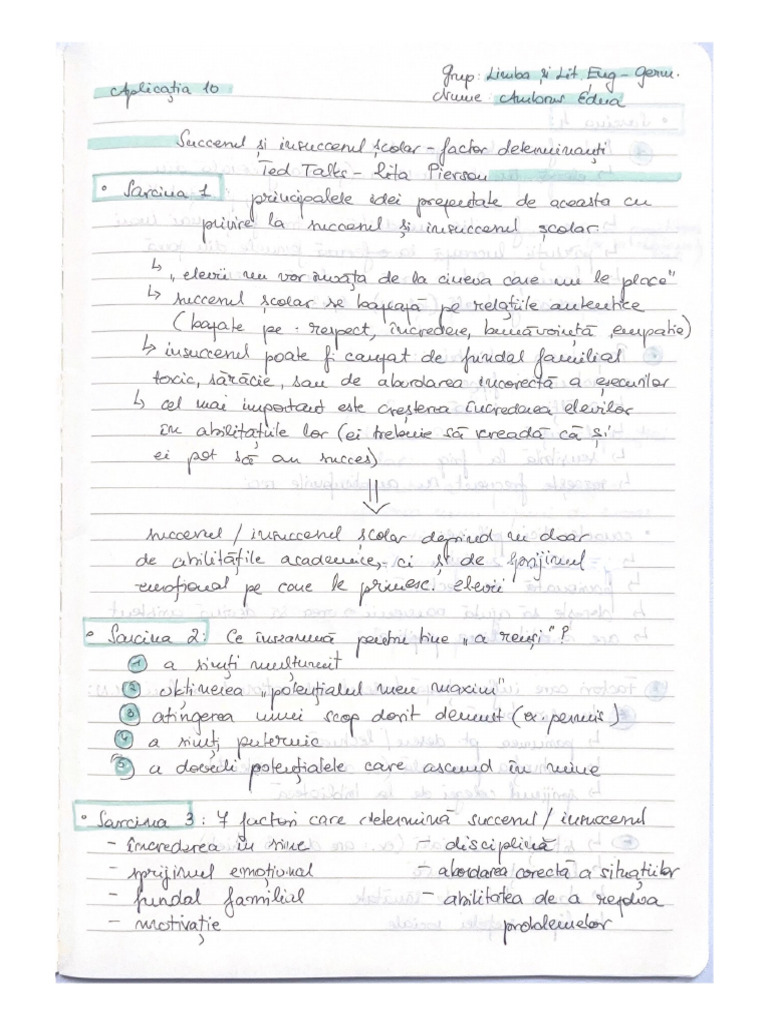 Aplicația 10
Grup: Limba și Lit. Eng - Germ.
Nume: Ambrus Edina
Succesul și insuccesul școlar - factor determinanți
Ted Talks - Rita Pierson
• Sarcina 1 principalele idei prezentate de aceasta cu
privire la succesul și insuccesul școlar:
↳ „elevii nu vor învăța de la cineva care nu le place"
↳ succesul școlar se bazează pe relațiile autentice
(bazate pe: respect, încredere, bunăvoință, empatie)
↳ insuccesul poate fi cauzat de fundal familial
toxic, sărăcie, sau de abordarea incorectă a eșecurilor
↳ cel mai important este creșterea încrederea elevilor
în abilitățiile lor (ei trebuie să creadă că și
ei pot să au succes)
⇓
succesul / insuccesul școlar depind nu doar
de abilitățile academice, ci și de sprijinul
emoțional pe care le primesc elevii
• Sarcina 2: Ce înseamnă pentru tine „a reuși"?
1 a simți mulțumit
2 obținerea „potențialul meu maxim"
3 atingerea unui scop dorit demult (ex. permis)
4 a simți puternic
5 a dovedi potențialele care ascund în mine
• Sarcina 3: 7 factori care determină succesul / insuccesul
- încrederea în sine
- disciplină
- sprijinul emoțional
- abordarea corectă a situațiilor
- fundal familial
- abilitatea de a rezolva
- motivație
problemelor